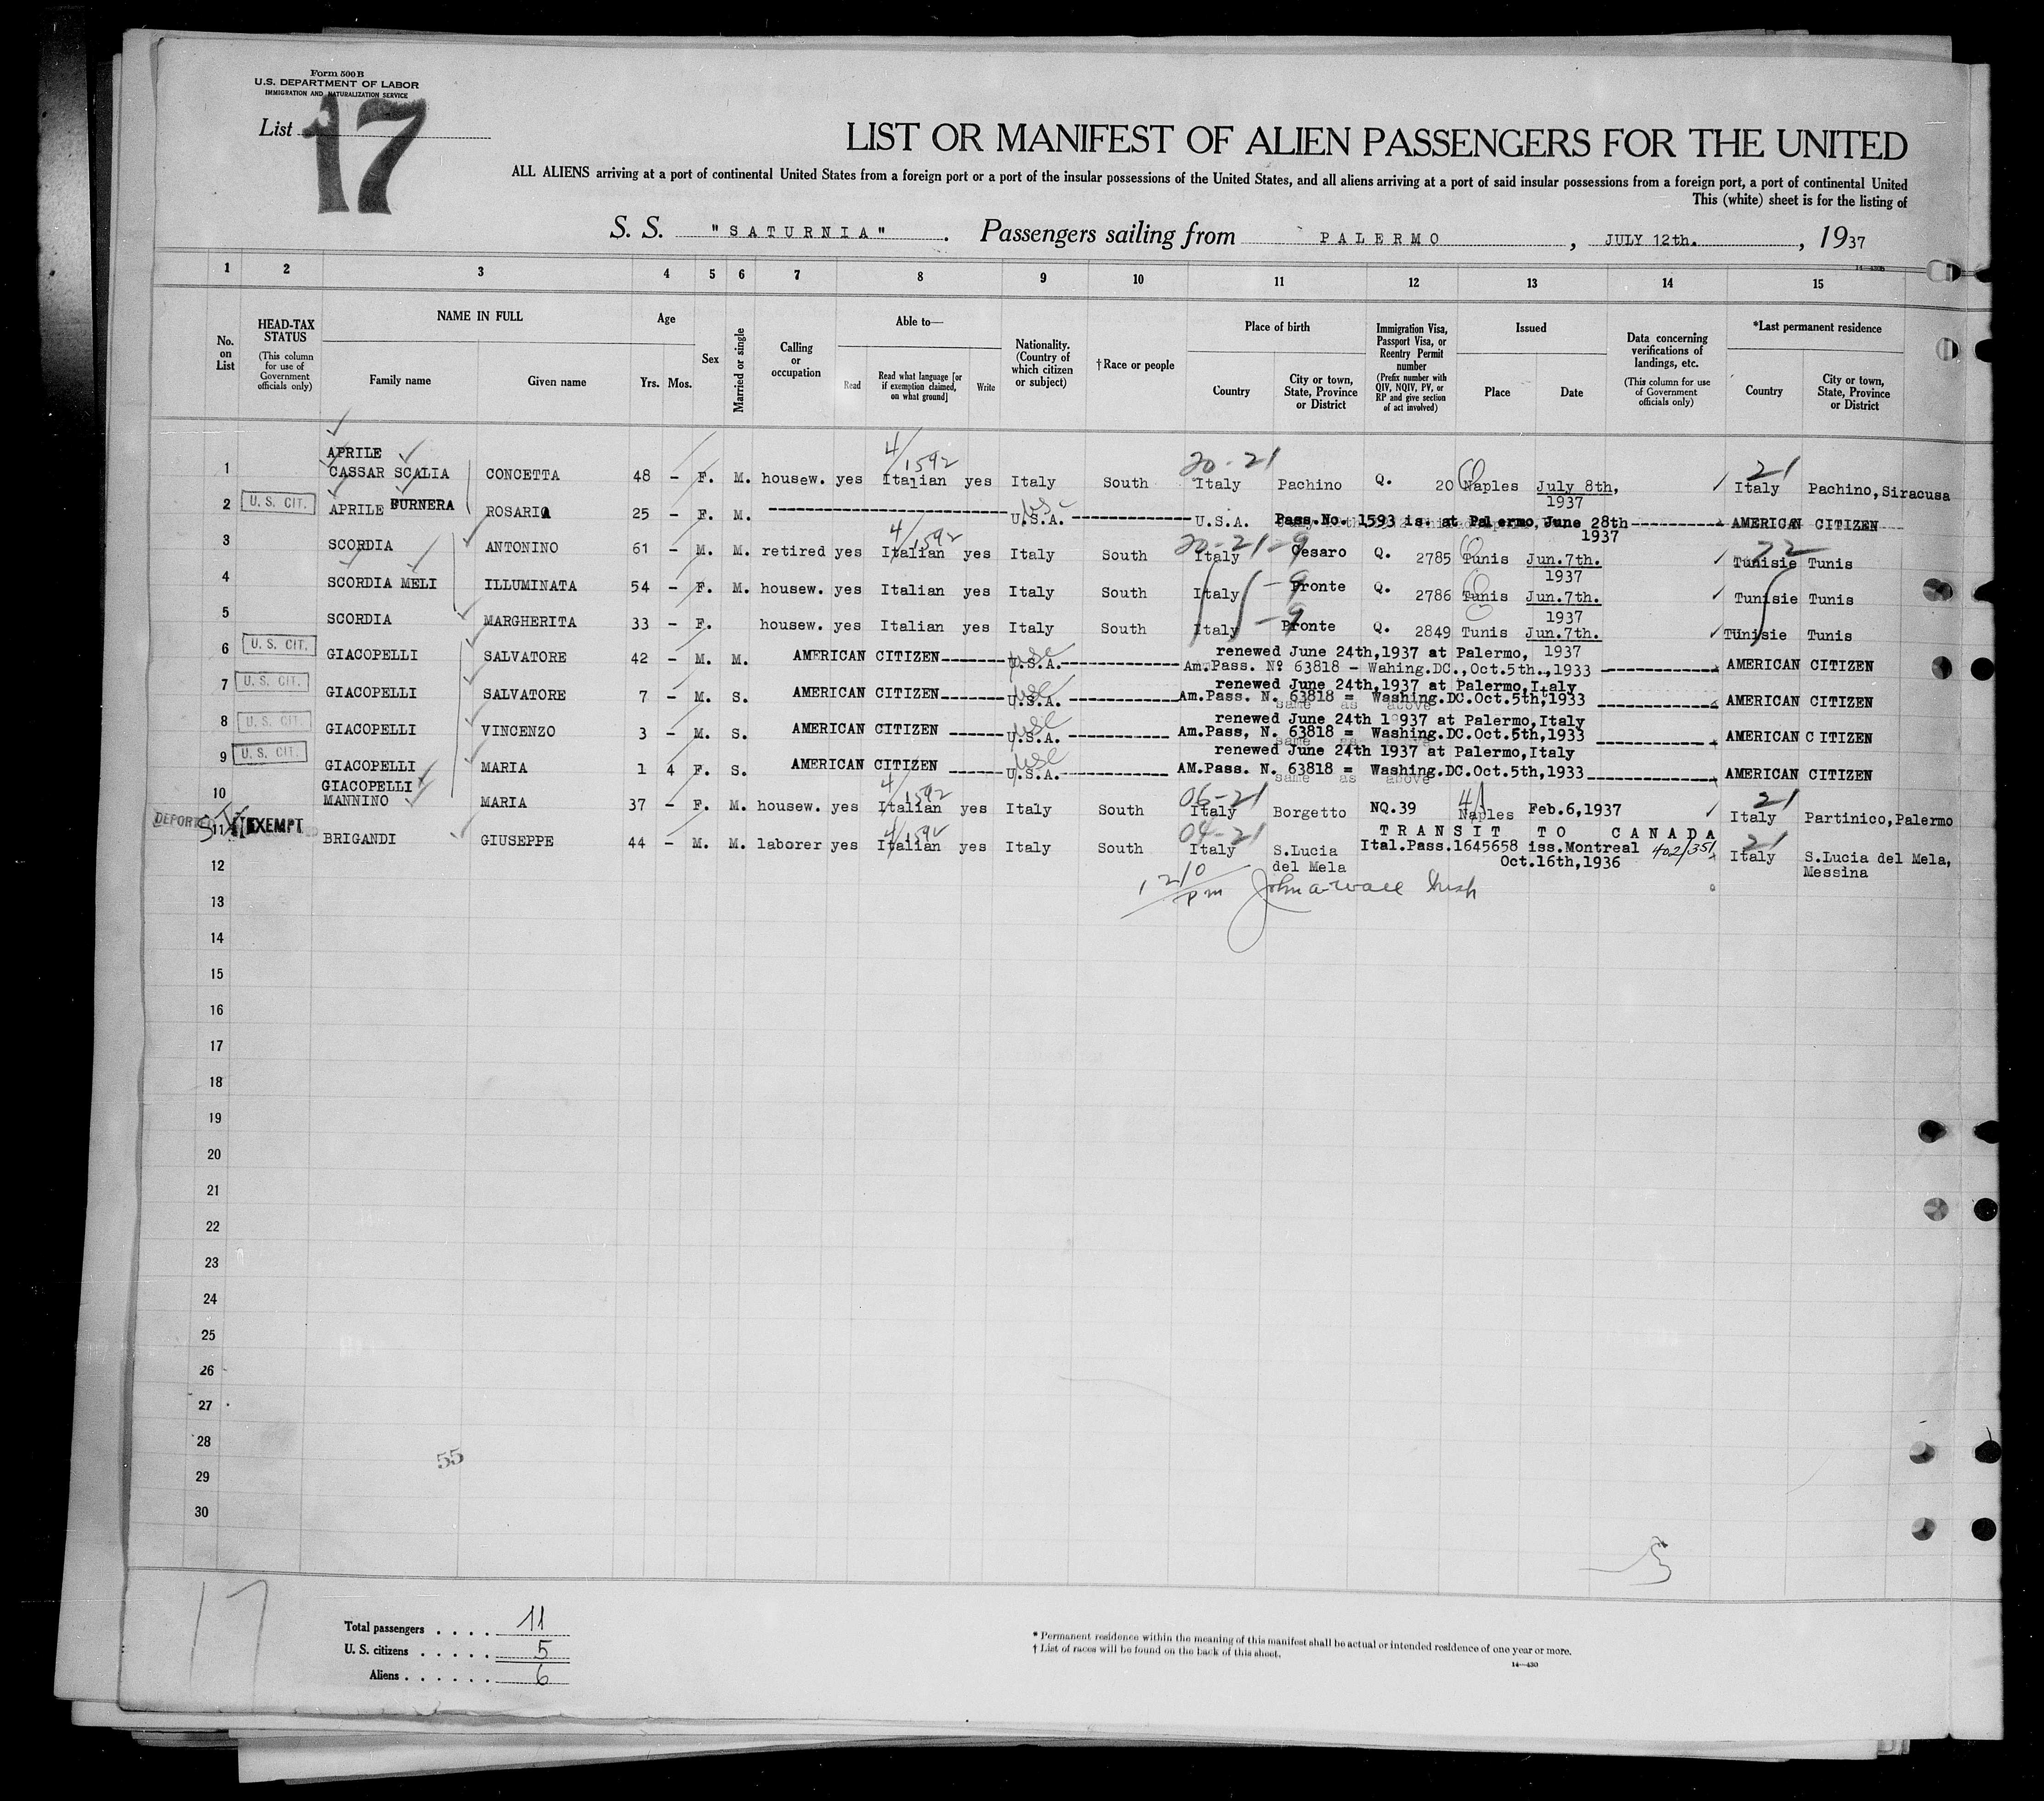 Form 500 B
U.S. DEPARTMENT OF LABOR
IMMIGRATION AND NATURALIZATION SERVICE
List 17
LIST OR MANIFEST OF ALIEN PASSENGERS FOR THE UNITED
ALL ALIENS arriving at a port of continental United States from a foreign port or a port of the insular possessions of the United States, and all aliens arriving at a port of said insular possessions from a foreign port, a port of continental United
This (white) sheet is for the listing of
S. S. "SATURNIA". Passengers sailing from PALERMO, JULY 12th., 1937
1 2 3 4 5 6 7 8 9 10 11 12 13 14 15
No. on List
HEAD-TAX STATUS (This column for use of Government officials only)
NAME IN FULL
Family name Given name
Age
Yrs. Mos.
Sex
Married or single
Calling or occupation
Able to—
Read Read what language [or if exemption claimed, on what ground] Write
Nationality. (Country of which citizen or subject)
†Race or people
Place of birth
Country City or town, State, Province or District
Immigration Visa, Passport Visa, or Reentry Permit number (Prefix number with QIV, NQIV, PV, or RP and give section of act involved)
Issued
Place Date
Data concerning verifications of landings, etc. (This column for use of Government officials only)
*Last permanent residence
Country City or town, State, Province or District
APRILE 4/1592 20-21 21
1 CASSAR SCALIA CONCETTA 48 - F. M. housew. yes Italian yes Italy South Italy Pachino Q. 20 Naples July 8th, 1937 Italy Pachino, Siracusa
2 U. S. CIT. APRILE FURNERA ROSARIA 25 - F. M. USC U.S.A. U.S.A. Pass.No. 1593 is. at Palermo, June 28th 1937 AMERICAN CITIZEN
4/1592 20-21-9 22
3 SCORDIA ANTONINO 61 - M. M. retired yes Italian yes Italy South Italy Cesaro Q. 2785 Tunis Jun.7th. 1937 Tunisie Tunis
4 SCORDIA MELI ILLUMINATA 54 - F. M. housew. yes Italian yes Italy South Italy -9 Bronte Q. 2786 Tunis Jun.7th. 1937 Tunisie Tunis
5 SCORDIA MARGHERITA 33 - F. housew. yes Italian yes Italy South Italy -9 Bronte Q. 2849 Tunis Jun.7th. 1937 Tunisie Tunis
renewed June 24th,1937 at Palermo,
6 U. S. CIT. GIACOPELLI SALVATORE 42 - M. M. AMERICAN CITIZEN USC U.S.A. Am.Pass. Nº 63818 - Wahing.DC.,Oct.5th.,1933 AMERICAN CITIZEN
renewed June 24th,1937 at Palermo,Italy
7 U. S. CIT. GIACOPELLI SALVATORE 7 - M. S. AMERICAN CITIZEN USC U.S.A. Am.Pass. N. 63818 = Washing.DC.Oct.5th,1933 AMERICAN CITIZEN
same as above
renewed June 24th 1937 at Palermo,Italy
8 U. S. CIT. GIACOPELLI VINCENZO 3 - M. S. AMERICAN CITIZEN USC U.S.A. Am.Pass, N. 63818 = Washing.DC.Oct.5th,1933 AMERICAN CITIZEN
same as above
renewed June 24th 1937 at Palermo,Italy
9 U. S. CIT. GIACOPELLI MARIA 1 4 F. S. AMERICAN CITIZEN USC U.S.A. AM.Pass. N. 63818 = Washing.DC.Oct.5th,1933 AMERICAN CITIZEN
same as above
GIACOPELLI 4/1592 06-21 21
10 MANNINO MARIA 37 - F. M. housew. yes Italian yes Italy South Italy Borgetto NQ.39 Naples Feb.6,1937 Italy Partinico, Palermo
DEPORTED EXEMPT 4/1592 04-21 TRANSIT TO CANADA 21
11 BRIGANDI GIUSEPPE 44 - M. M. laborer yes Italian yes Italy South Italy S.Lucia del Mela Ital.Pass.1645658 iss.Montreal Oct.16th,1936 402/351 Italy S.Lucia del Mela, Messina
12
1210 pm John A Wall Insp
13
14
15
16
17
18
19
20
21
22
23
24
25
26
27
28
55
29
30
17
Total passengers . . . . 11
U. S. citizens . . . . . 5
Aliens . . . . . . 6
* Permanent residence within the meaning of this manifest shall be actual or intended residence of one year or more.
† List of races will be found on the back of this sheet.
14—430